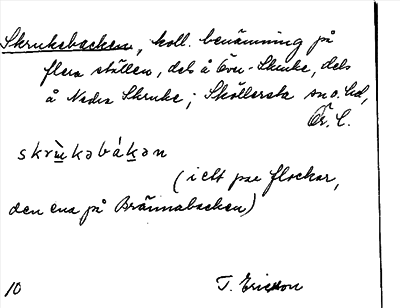 Skrukebacken, koll. benämning på
flera ställen, dels å Över-Skruke, dels
å Nedre Skruke; Sköllersta sn o. hd,
Ör. l.
skrù̱kəbáḵən
(i ett par flockar,
den ena på Brännabacken)
10 T. Ericsson